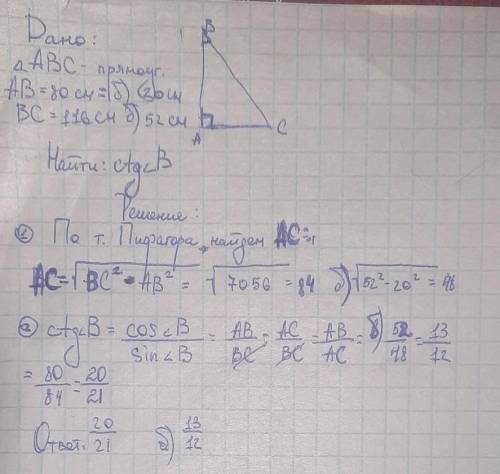 Дано:
B
△ABC - прямоуг.
AB = 80 см = б) 20 см
BC = 116 см б) 52 см
A
C
Найти: ctg∠B
Решение:
① По т. Пифагора найдем AC =
AC = √BC² - AB² = √7056 = 84 б) √52² - 20² = 48
② ctg∠B = cos∠B / sin∠B = AB/BC : AC/BC = AB/AC = б) 52/48 = 13/12
= 80/84 = 20/21
Ответ: 20/21 б) 13/12